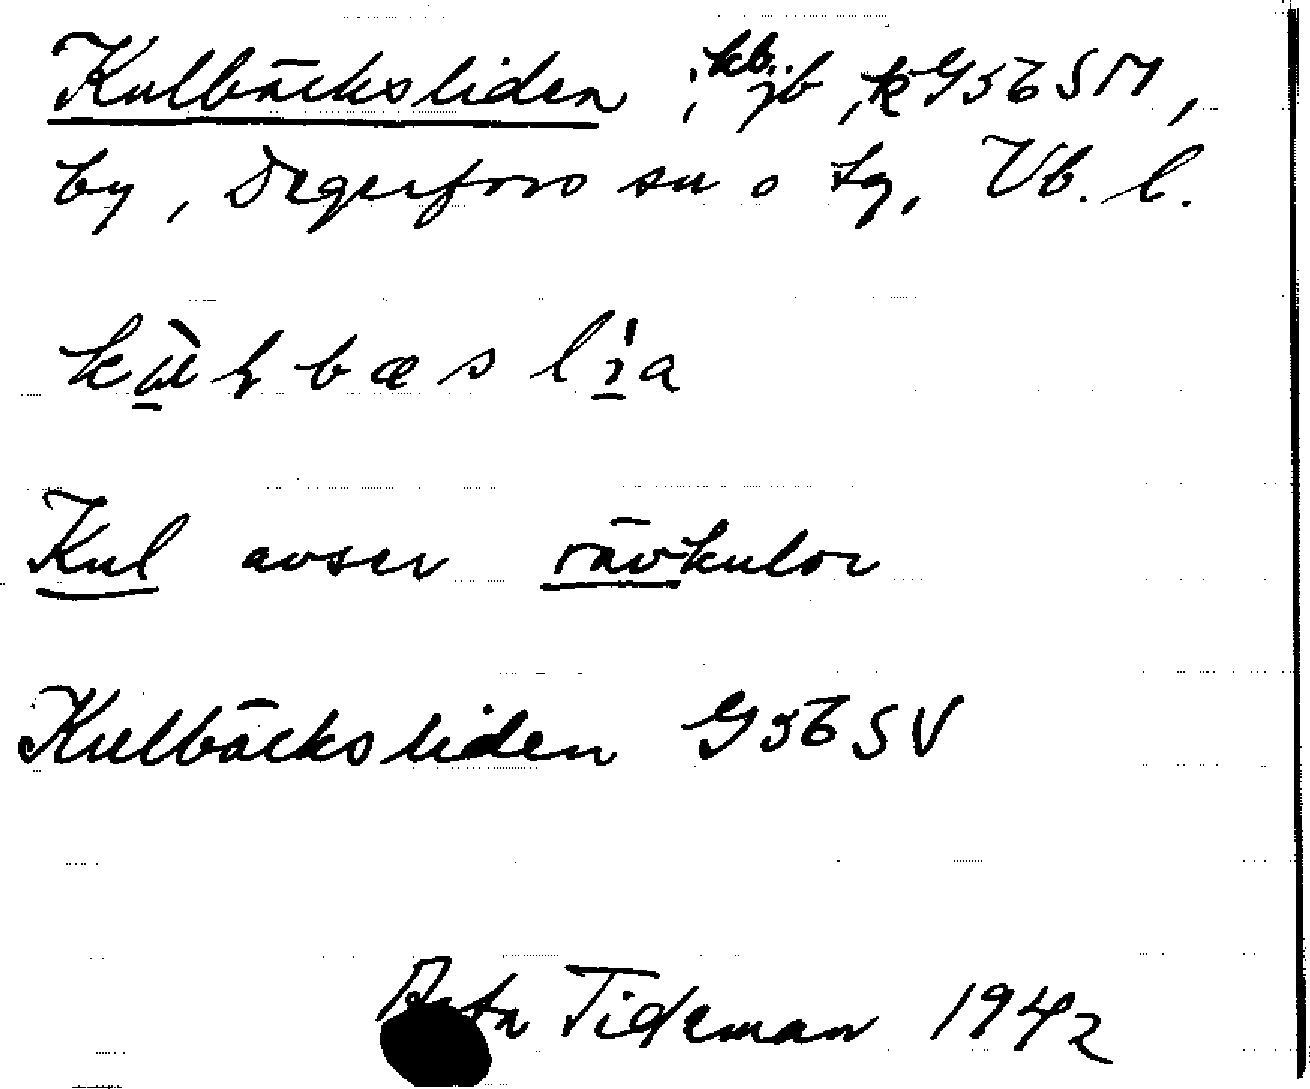 Kulbäcksliden, kb, jb, k G56SM,
by, Degerfors sn o tg, Vb. l.
kù̱ɫbæslı̱̍a
Kul avser rävkulor
Kulbäcksliden G56SV
Tideman 1942